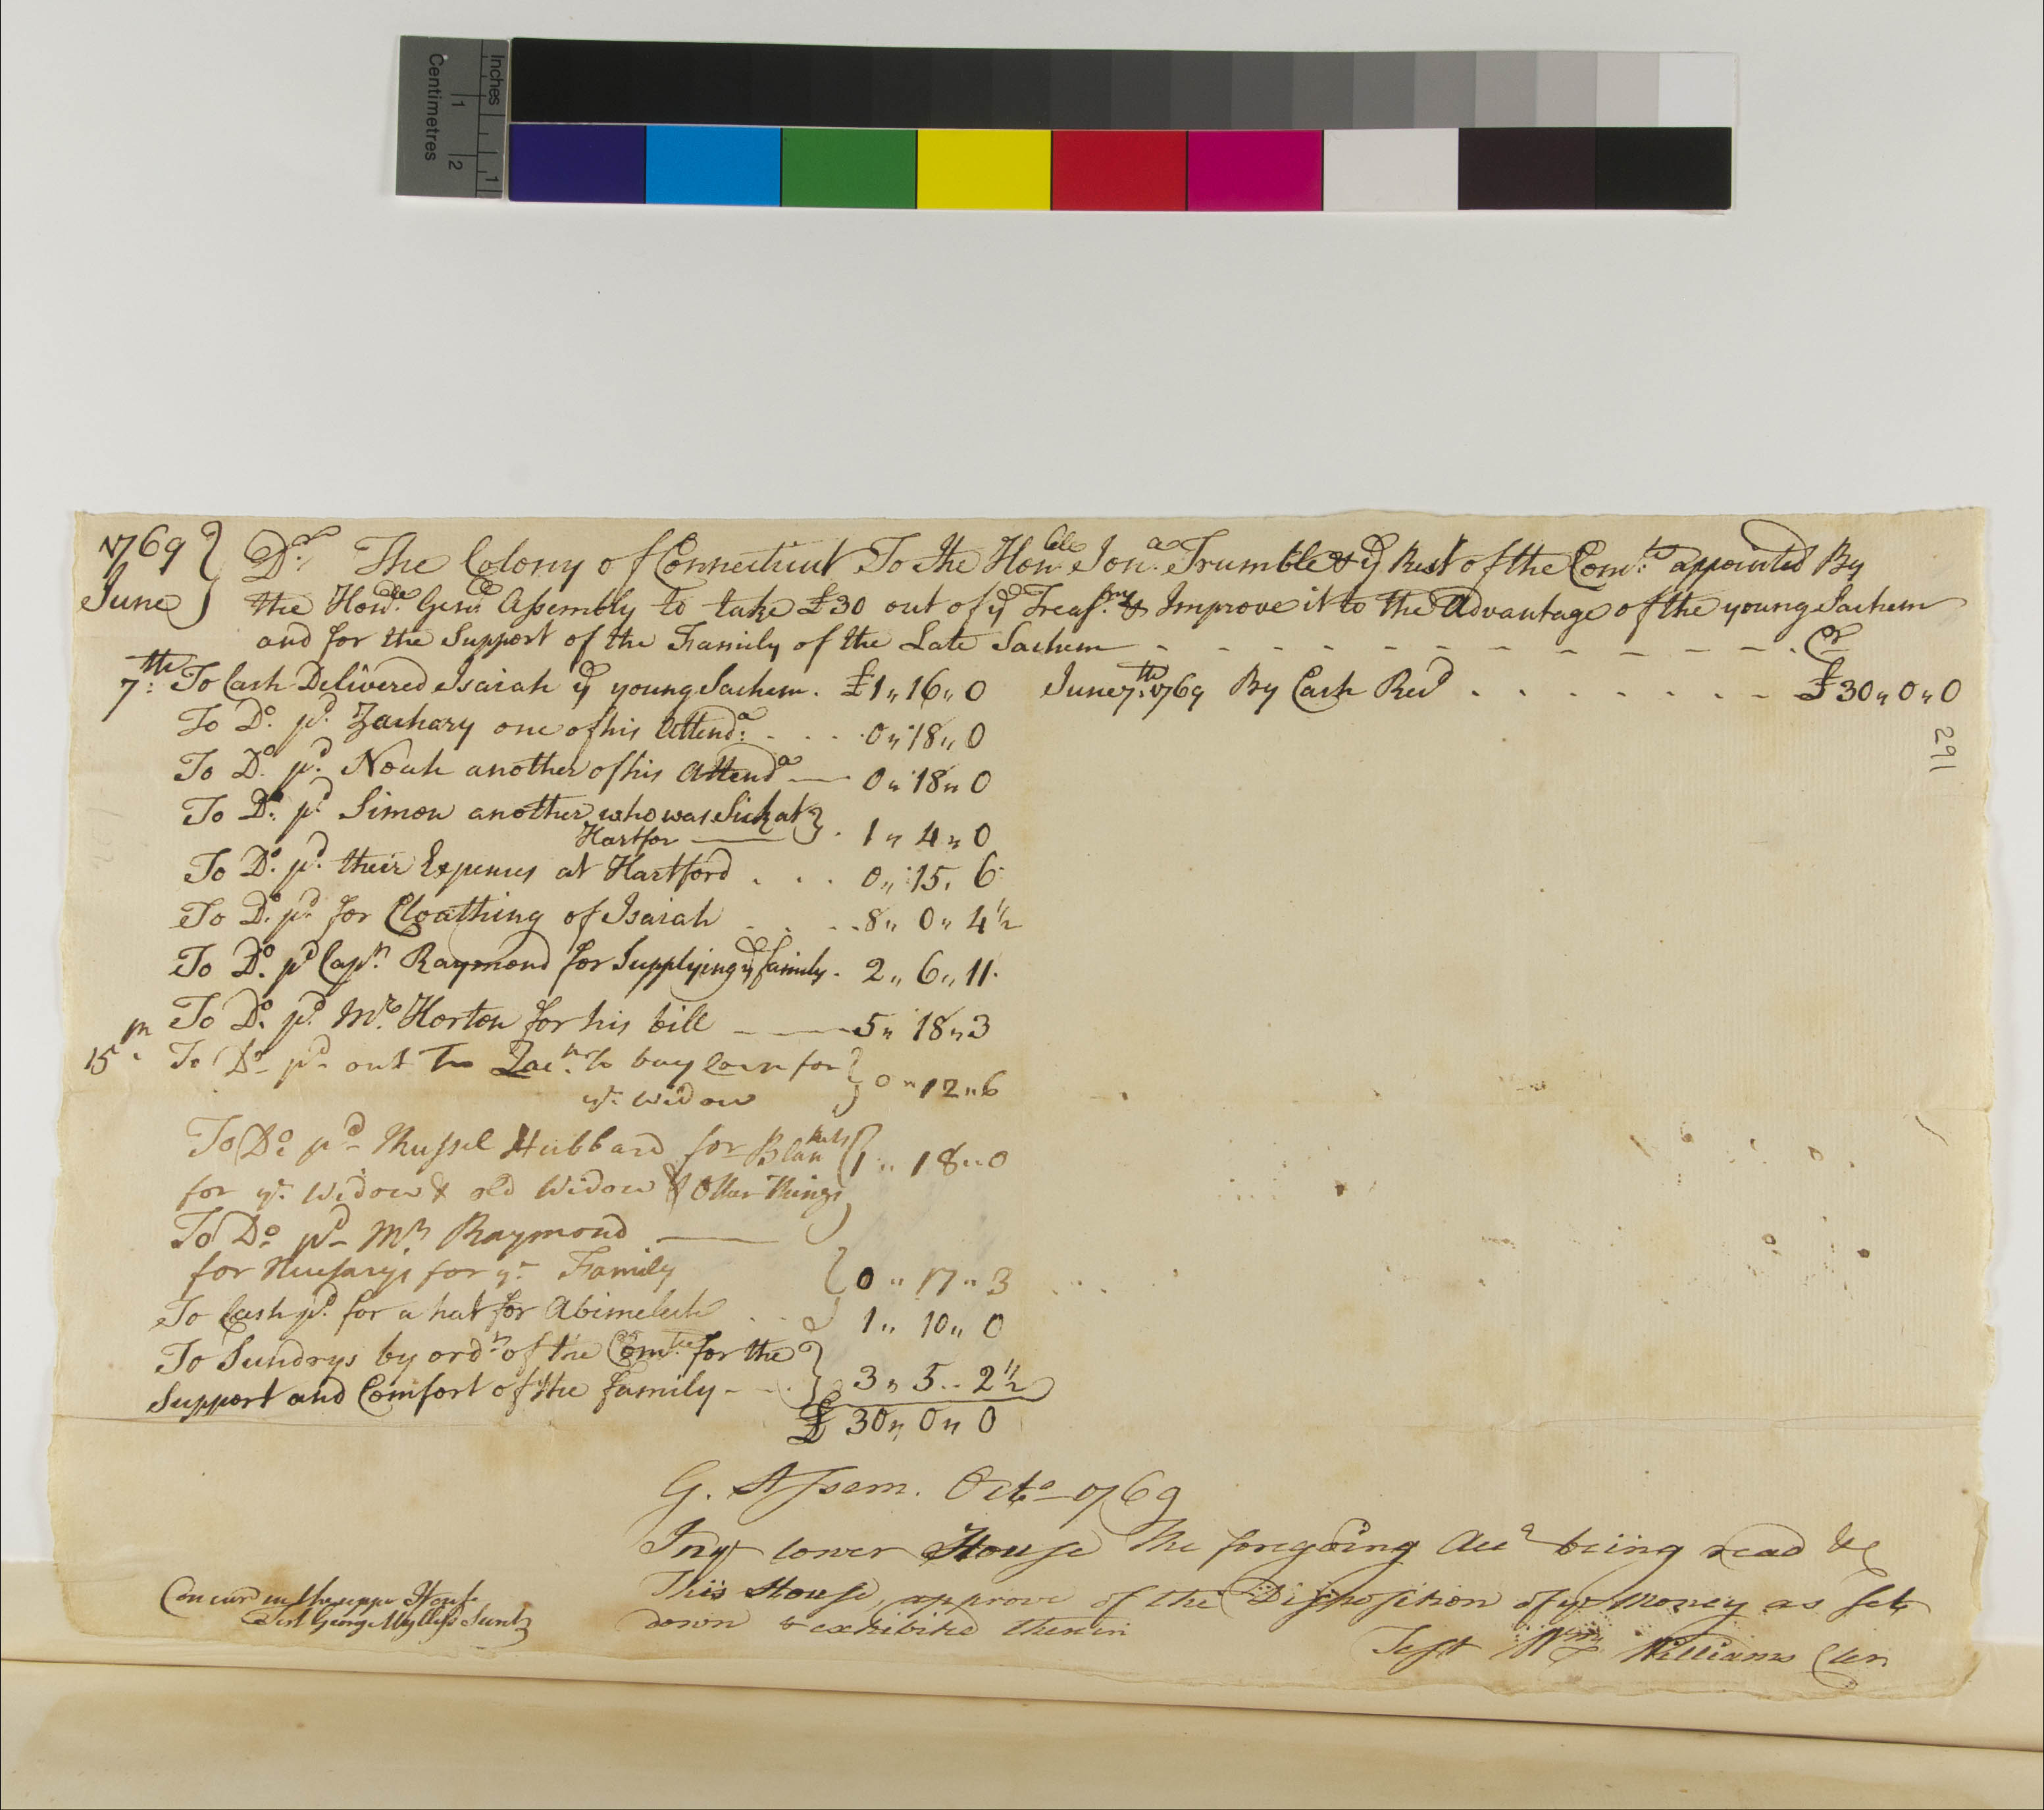 Inches
Centimetres
1
2
1
1769 } Dr. The Colony of Connecticut To the Honble Jona. Trumble & ye Rest of the Comte. appointed By
June } the Honble. Genll Assembly to take £30 out of ye Treasry. & Improve it to the Advantage of the young Sachem
and for the Support of the Family of the Late Sachem - - - - - - - - - - - - Cr
7th: To Cash Delivered Isaiah ye young Sachem . £1 " 16 " 0 June 7th. 1769 By Cash Recd . . . . . . . - £30 " 0 " 0
To Do. pd. Zachary one of his Attenda: . . . 0 " 18 " 0
To Do. pd. Noah another of his Attenda — 0 " 18 " 0
To Do. pd. Simon another who was Sick at }
Hartfor — . 1 " 4 " 0
To Do. pd. their Expences at Hartford . . . 0 " 15 " 6
To Do. pd for Cloathing of Isaiah . . . 8 " 0 " 4½
To Do. pd Capn. Raymond for Supplying ye family . 2 " 6 " 11
To Do. pd. Mr. Horton for his bill — 5 " 18 " 3
15th. To Do pd out To Zacr. to buy Corn for }
ye. Widow 0 " 12 " 6
To Do pd Russel Hubbard for Blankets }
for ye. Widow & old Widow & Other Things } 1 " 18 " 0
To Do pd Mr. Raymond —
for Nessarys for ye Family } 0 " 17 " 3
To Cash pd. for a hat for Abimeleck . . 1 " 10 " 0
To Sundrys by ordr. of the Comtee for the }
Support and Comfort of the family - - . } 3 " 5 " 2½
£ 30 " 0 " 0
291
G. Assem. Octo. 1769
In ye lower House The foregoing Acct being read &c
This House, approve of the Disposition of ye Money as set
down & exhibited therein
Test Wm Williams Cler
Concurd in the upper House
Test George Wyllys Secretry